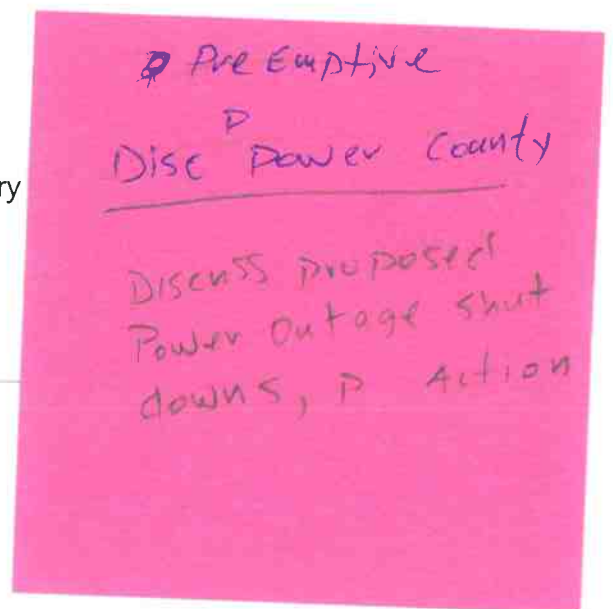 Pre Emptive
P
Disc Power County
ry
Discuss proposed
Power Outage Shut
downs, P Action